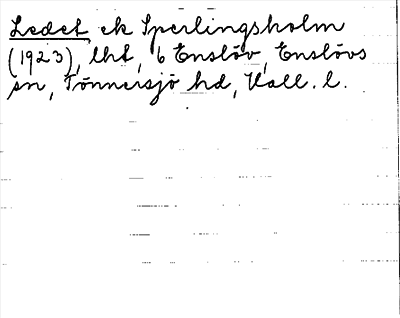 Ledet ek Sperlingsholm
(1923), lht, 6 Enslöv, Enslövs
sn, Tönnersjö hd, Hall. l.